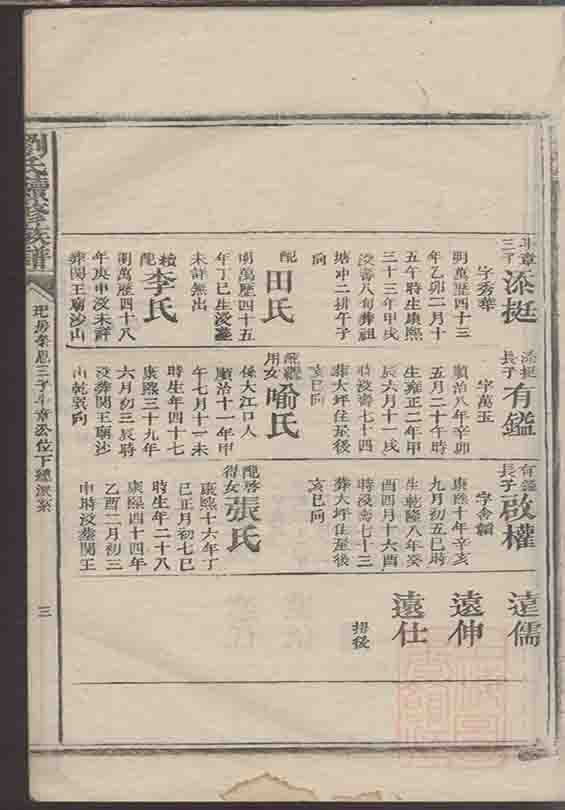 斗章三子
添挺
字秀華
明萬歷四十三
年乙卯二月十
五午時生康熙
三十三年甲戌
没壽八旬葬祖
塘冲二排午子
向
配
田氏
明萬歷四十五
年丁巳生没塟
未詳無出
續配
李氏
明萬歷四十八
年庚申没未詳
葬関王廟沙山
添挺長子
有鑑
字萬玉
順治八年辛卯
五月二十午時
生雍正二年甲
辰六月十一戌
時没壽七十四
葬大坪住屋後
亥巳向
喻氏
係大江口人
順治十一年甲
午七月十一未
時生年四十七
康熙三十九年
六月初三辰時
没葬関王廟沙
山乾巽向
有鑑長子
啟權
康熙十年辛亥
九月初五巳時
生乾隆八年癸
酉四月十六酉
時没壽七十三
葬大坪住屋後
亥巳向
配啓得女
張氏
康熙十六年丁
巳正月初七巳
時生年二十八
康熙四十四年
乙酉二月初三
申時没葬関王
遠儒
遠伸
遠仕
招後
劉氏續修族譜
三子斗章公位下總派系
三